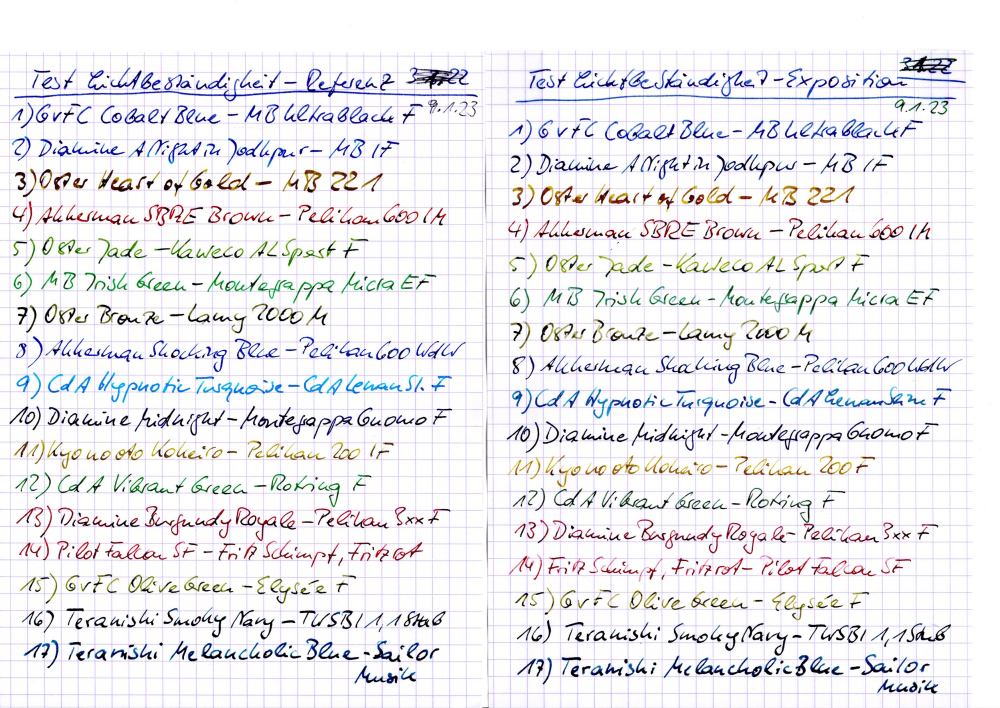 Test Lichtbeständigkeit – Referenz
9.1.23
1) GvFC Cobalt Blue – MB Ultrablack F
2) Diamine A Night in Jodhpur – MB 1F
3) Oster Heart of Gold – MB 221
4) Akkerman SBRE Brown – Pelikan 600 1M
5) Oster Jade – Kaweco AL Sport F
6) MB Irish Green – Montegrappa Micra EF
7) Oster Bronze – Lamy 2000 M
8) Akkerman Shocking Blue – Pelikan 600 WdW
9) CdA Hypnotic Turquoise – CdA Leman Sl. F
10) Diamine Midnight – Montegrappa Gnomo F
11) Kyonooto Koheiro – Pelikan 200 1F
12) CdA Vibrant Green – Rotring F
13) Diamine Burgundy Royale – Pelikan 3xx F
14) Pilot Falcon SF – Fritz Schimpf, Fritzrot
15) GvFC Olive Green – Elysée F
16) Teranishi Smoky Navy – TWSBI 1,1 Stub
17) Teranishi Melancholic Blue – Sailor
Musik
Test Lichtbeständigkeit – Exposition
9.1.23
1) GvFC Cobalt Blue – MB Ultrablack F
2) Diamine A Night in Jodhpur – MB 1F
3) Oster Heart of Gold – MB 221
4) Akkerman SBRE Brown – Pelikan 600 1M
5) Oster Jade – Kaweco AL Sport F
6) MB Irish Green – Montegrappa Micra EF
7) Oster Bronze – Lamy 2000 M
8) Akkerman Shocking Blue – Pelikan 600 WdW
9) CdA Hypnotic Turquoise – CdA Leman Slim F
10) Diamine Midnight – Montegrappa Gnomo F
11) Kyonooto Koheiro – Pelikan 200 F
12) CdA Vibrant Green – Rotring F
13) Diamine Burgundy Royale – Pelikan 3xx F
14) Fritz Schimpf, Fritzrot – Pilot Falcon SF
15) GvFC Olive Green – Elysée F
16) Teranishi Smoky Navy – TWSBI 1,1 Stub
17) Teranishi Melancholic Blue – Sailor
Musik